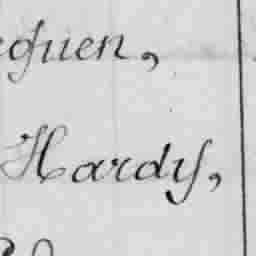 guen,
Hardy,